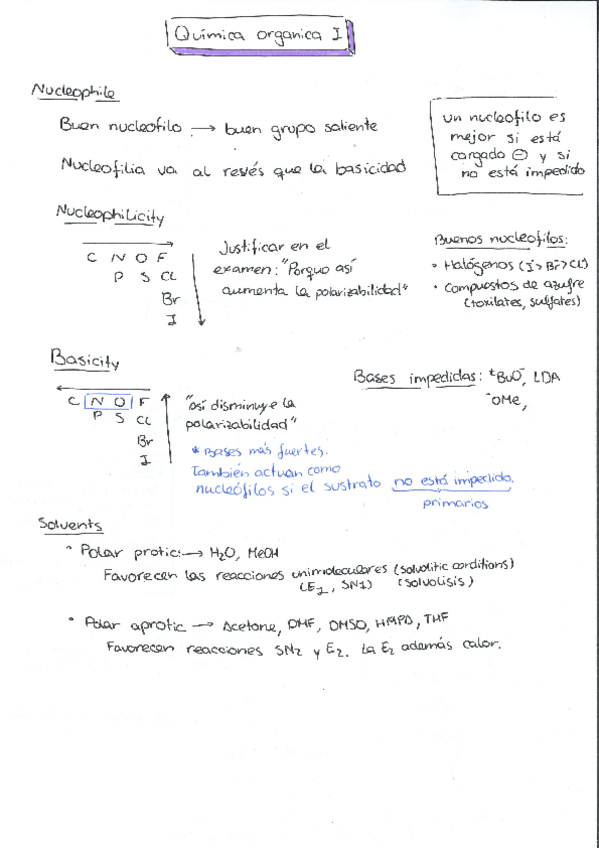 Química organica I
Nucleophile
Buen nucleofilo → buen grupo saliente
Nucleofilia va al revés que la basicidad
un nucleofilo es
mejor si está
cargado ⊖ y si
no está impedido
Nucleophilicity
C N O F
P S Cl
Br
I
Justificar en el
examen: "Porque así
aumenta la polarizabilidad"
Buenos nucleofilos:
• Halógenos (I > Br > Cl)
• Compuestos de azufre
(toxilates, sulfates)
Basicity
C N O F
P S Cl
Br
I
"así disminuye la
polarizabilidad"
* Bases más fuertes.
También actuan como
nucleófilos si el sustrato no está impedido.
primarios
Bases impedidas: ᵗBuO⁻, LDA
⁻OMe,
Solvents
• Polar protic: → H₂O, MeOH
Favorecen las reacciones unimoleculares (solvolitic conditions)
(E₁, SN1) (solvolisis)
• Polar aprotic → Acetone, DMF, DMSO, HMPA, THF
Favorecen reacciones SN₂ y E₂. La E₂ además calor.